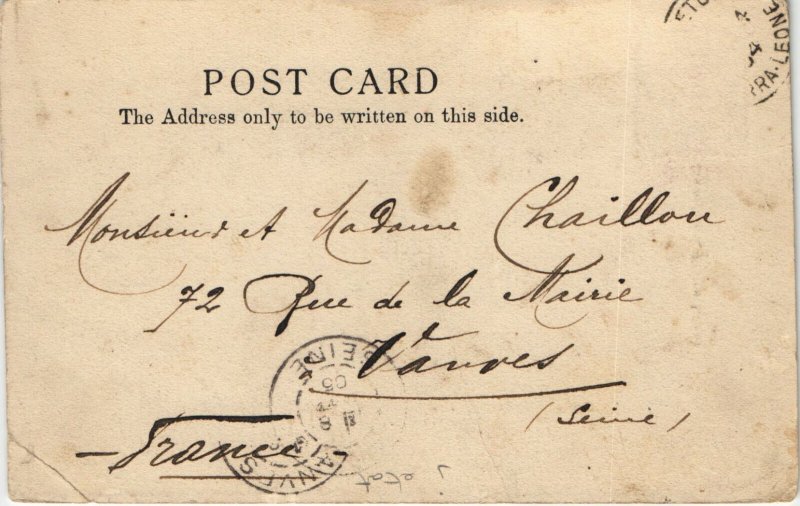 POST CARD
The Address only to be written on this side.
Monsieur et Madame Chaillou
72 Rue de la Mairie
Vanves
(Seine)
- France -
SEINE
RA-LEONE